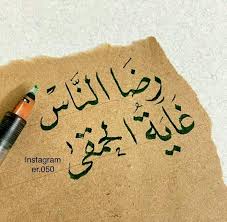 رضَا النَّاسْ
غَايَةُ الحمقىٰ
Instagram
er.050